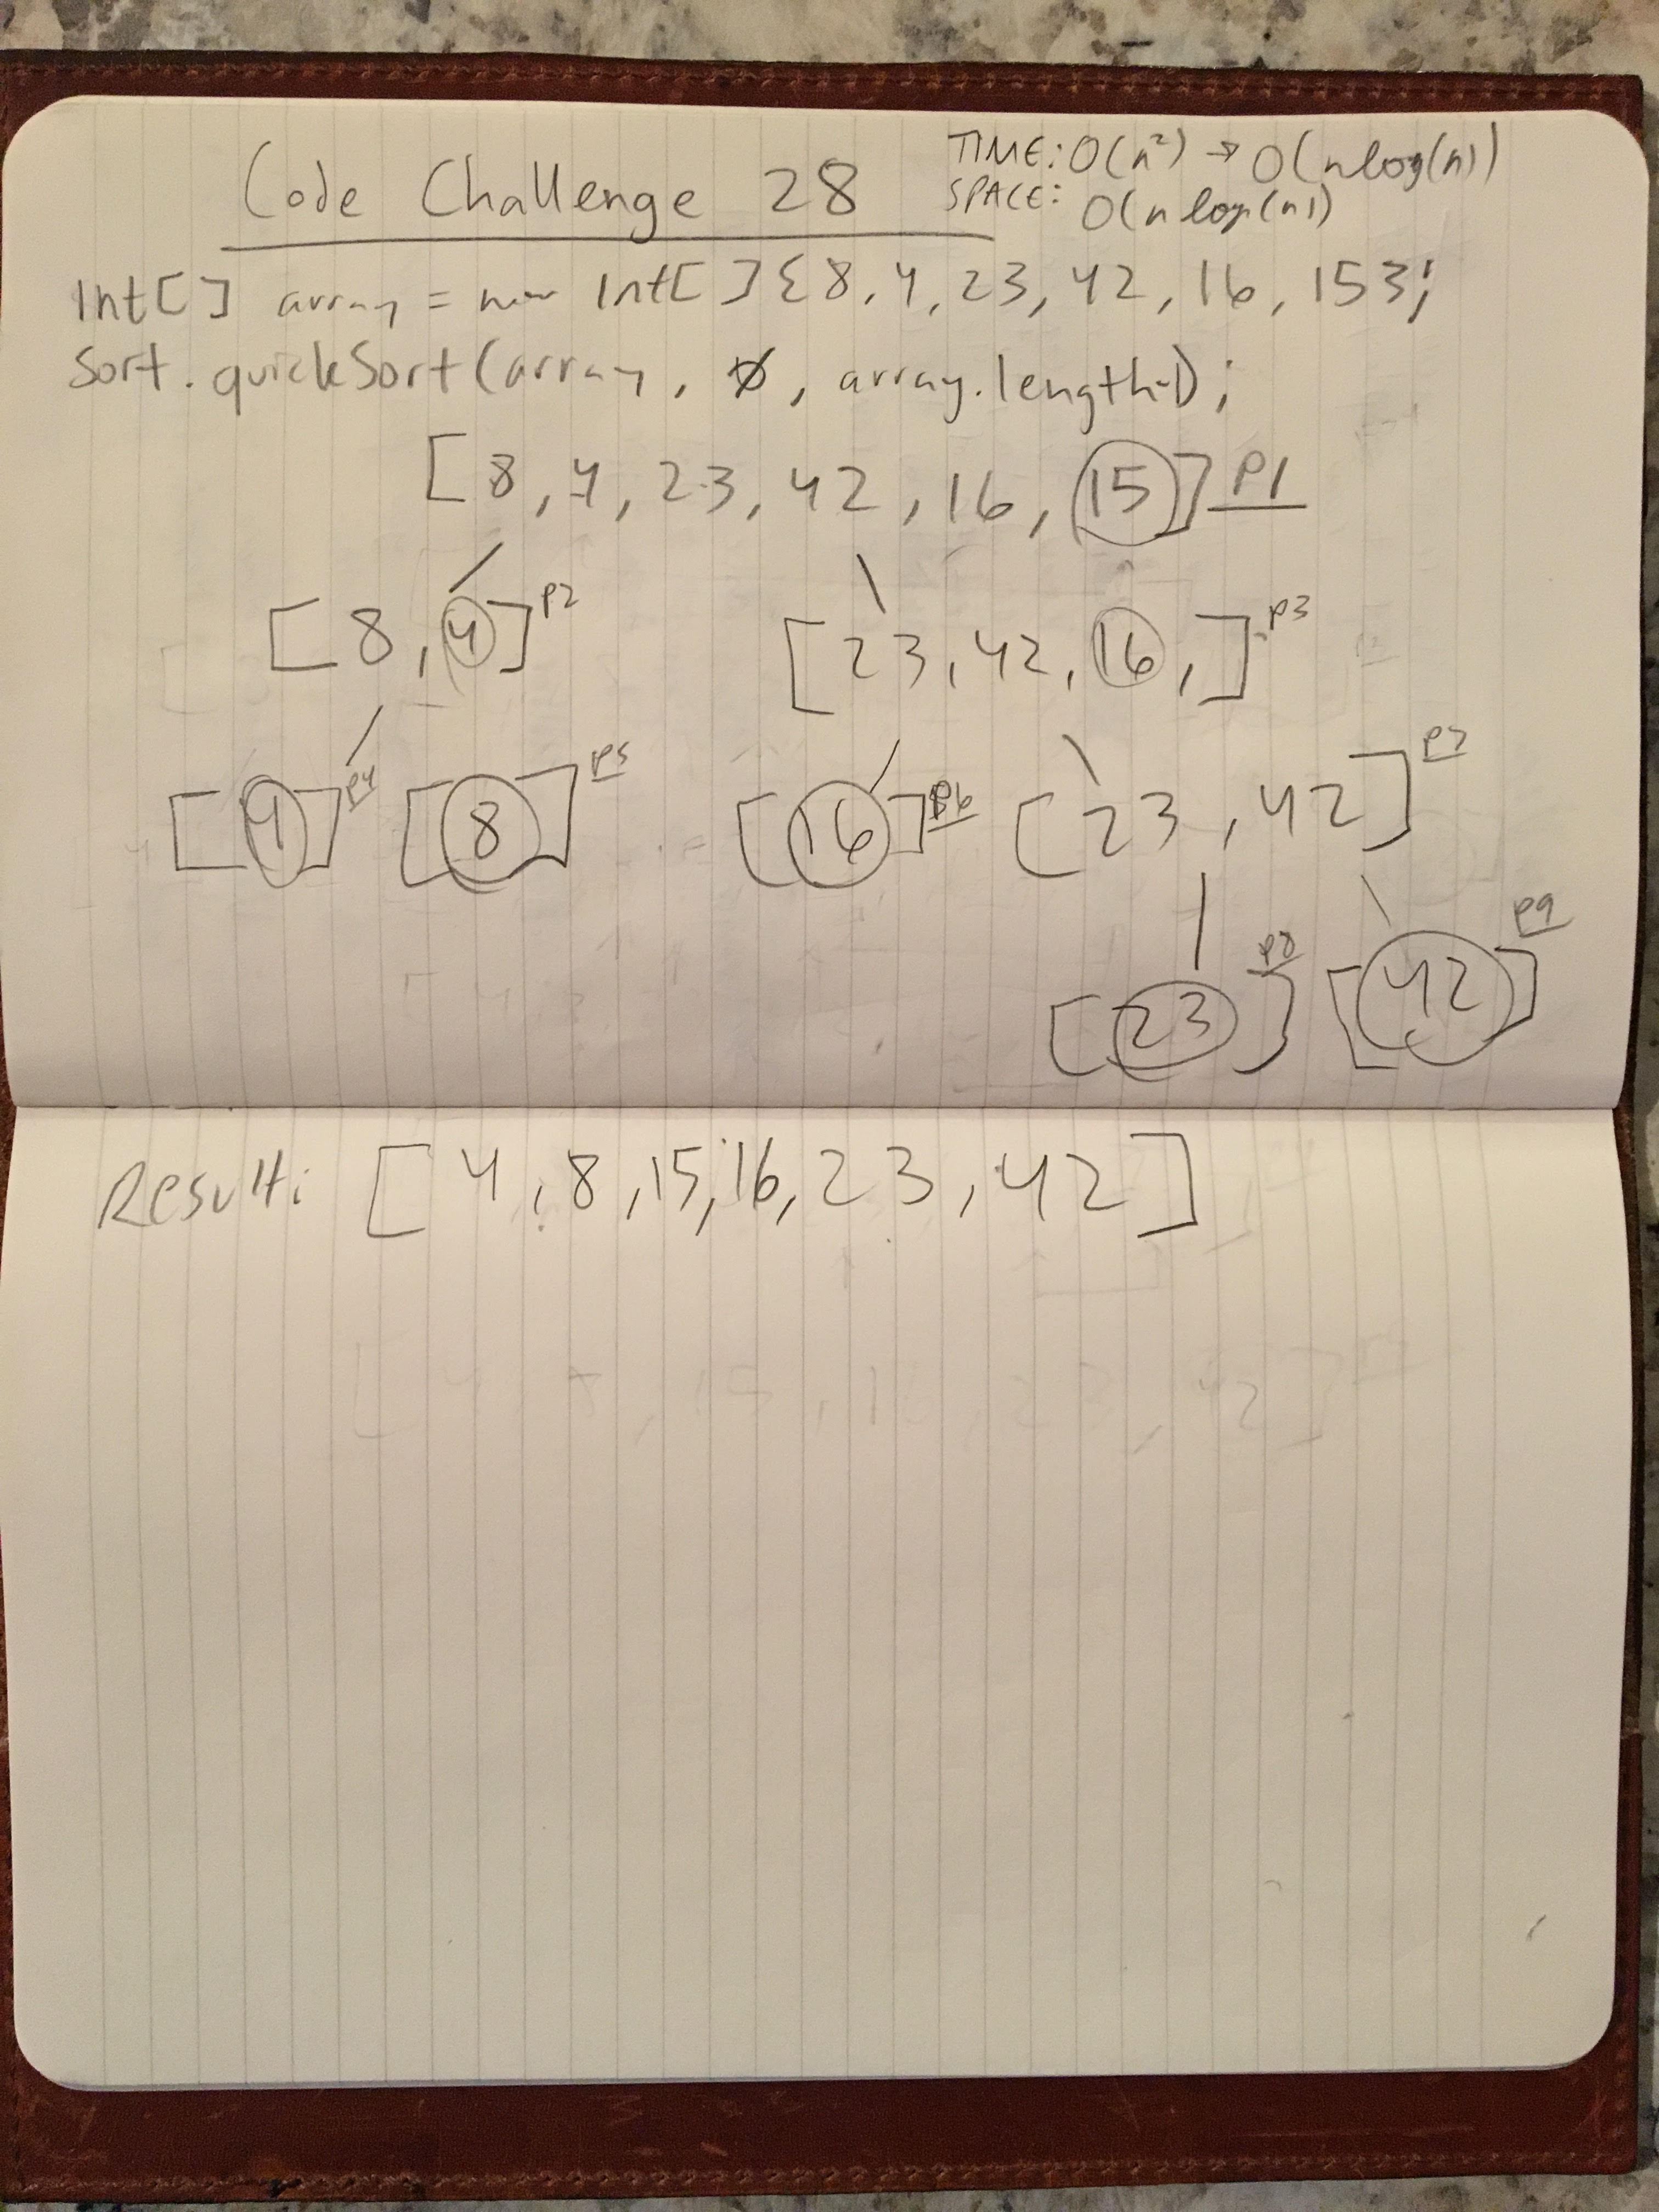 Code Challenge 28
TIME: O(n²) → O(nlog(n))
SPACE: O(nlog(n))
Int[] array = new Int[]{8, 4, 23, 42, 16, 15};
Sort.quickSort(array, 0, array.length-1);
[8, 4, 23, 42, 16, 15] P1
[8, 4] P2 [23, 42, 16, ] P3
[4] P4 [8] P5 [16] P6 [23, 42] P7
[23] P8 [42] P9
Result: [4, 8, 15, 16, 23, 42]